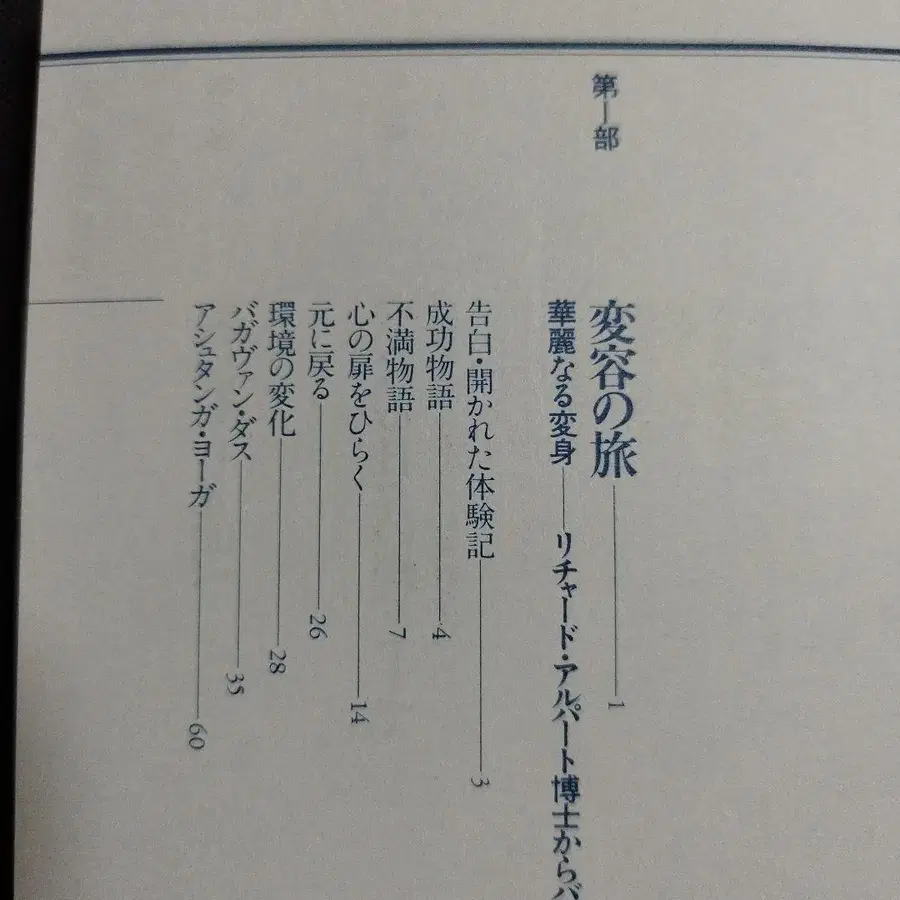 第一部
変容の旅——1
華麗なる変身——リチャード・アルパート博士からバ
告白・開かれた体験記——3
成功物語——4
不満物語——7
心の扉をひらく——14
元に戻る——26
環境の変化——28
バガヴァン・ダス——35
アシュタンガ・ヨーガ——60